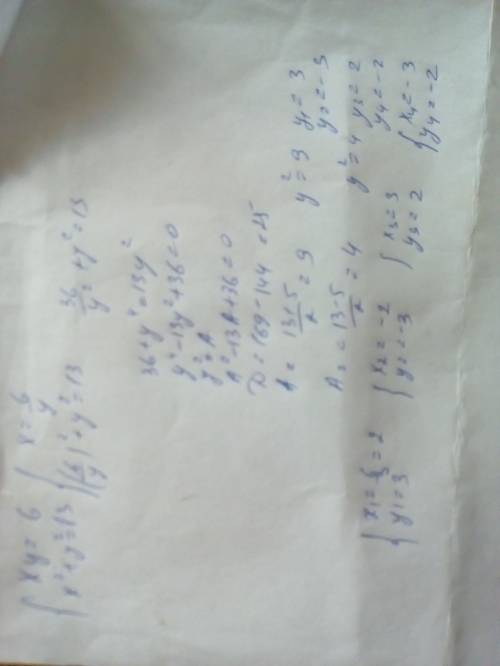 { xy = 6   { x = 6/y
{ x² + y² = 13   { (6/y)² + y² = 13   36/y² + y² = 13
36 + y⁴ = 13y²
y⁴ - 13y² + 36 = 0
y² = A
A² - 13A + 36 = 0
D = 169 - 144 = 25
A = (13 + 5)/2 = 9   y² = 9   y₁ = 3
y₂ = -3
A₂ = (13 - 5)/2 = 4   y² = 4   y₃ = 2
y₄ = -2
{ x₁ = 6/3 = 2   { x₂ = -2   { x₃ = 3   { x₄ = -3
{ y₁ = 3   { y = -3   { y₃ = 2   { y₄ = -2